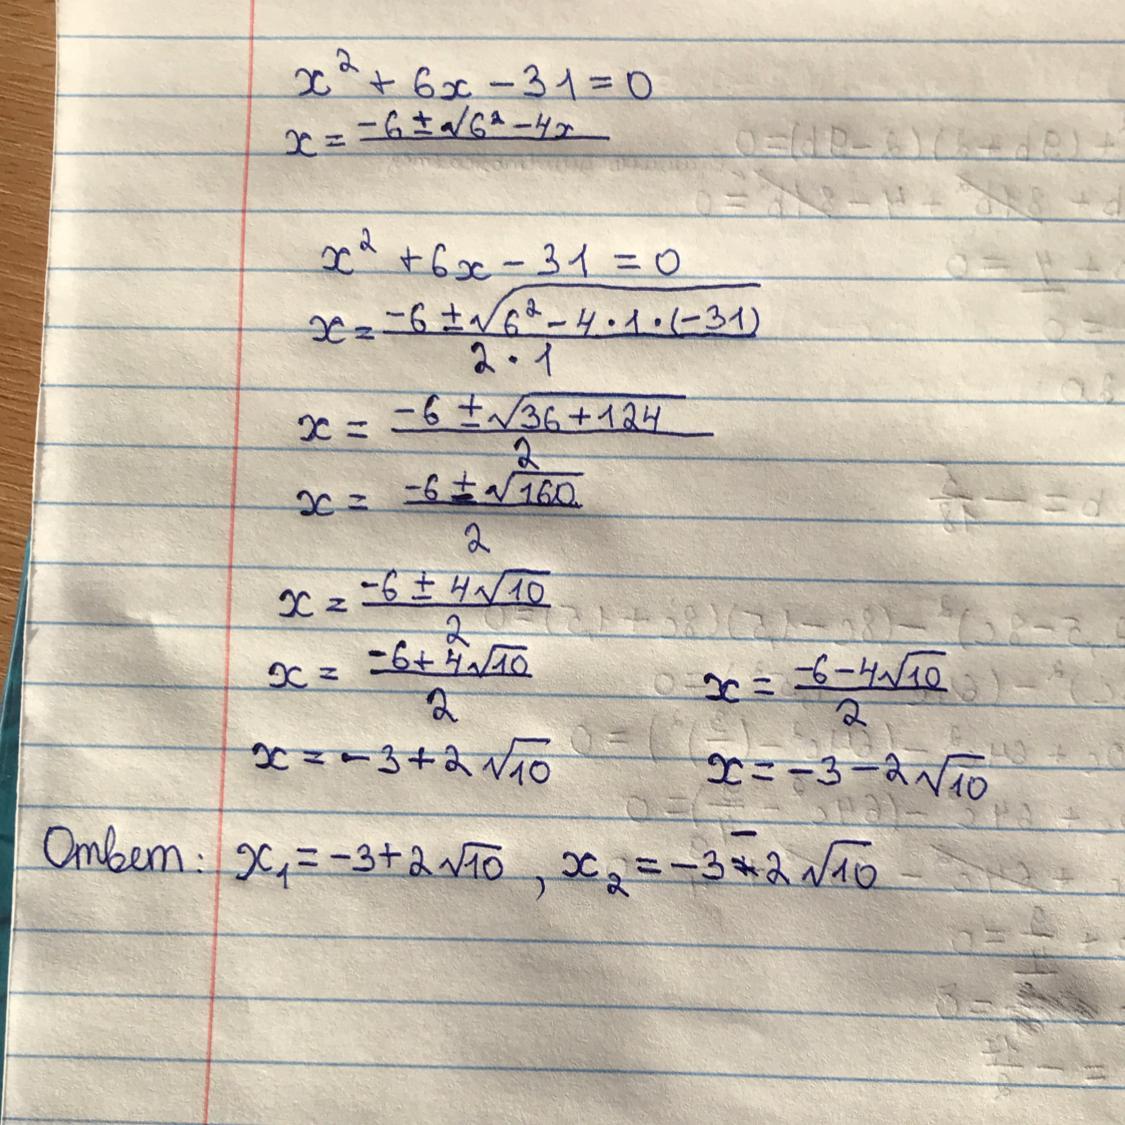 x² + 6x − 31 = 0
x = (−6 ± √6² − 4x
x² + 6x − 31 = 0
x = (−6 ± √(6² − 4 · 1 · (−31))) / (2 · 1)
x = (−6 ± √(36 + 124)) / 2
x = (−6 ± √160) / 2
x = (−6 ± 4√10) / 2
x = (−6 + 4√10) / 2    x = (−6 − 4√10) / 2
x = −3 + 2√10    x = −3 − 2√10
Ответ: x₁ = −3 + 2√10 , x₂ = −3 − 2√10